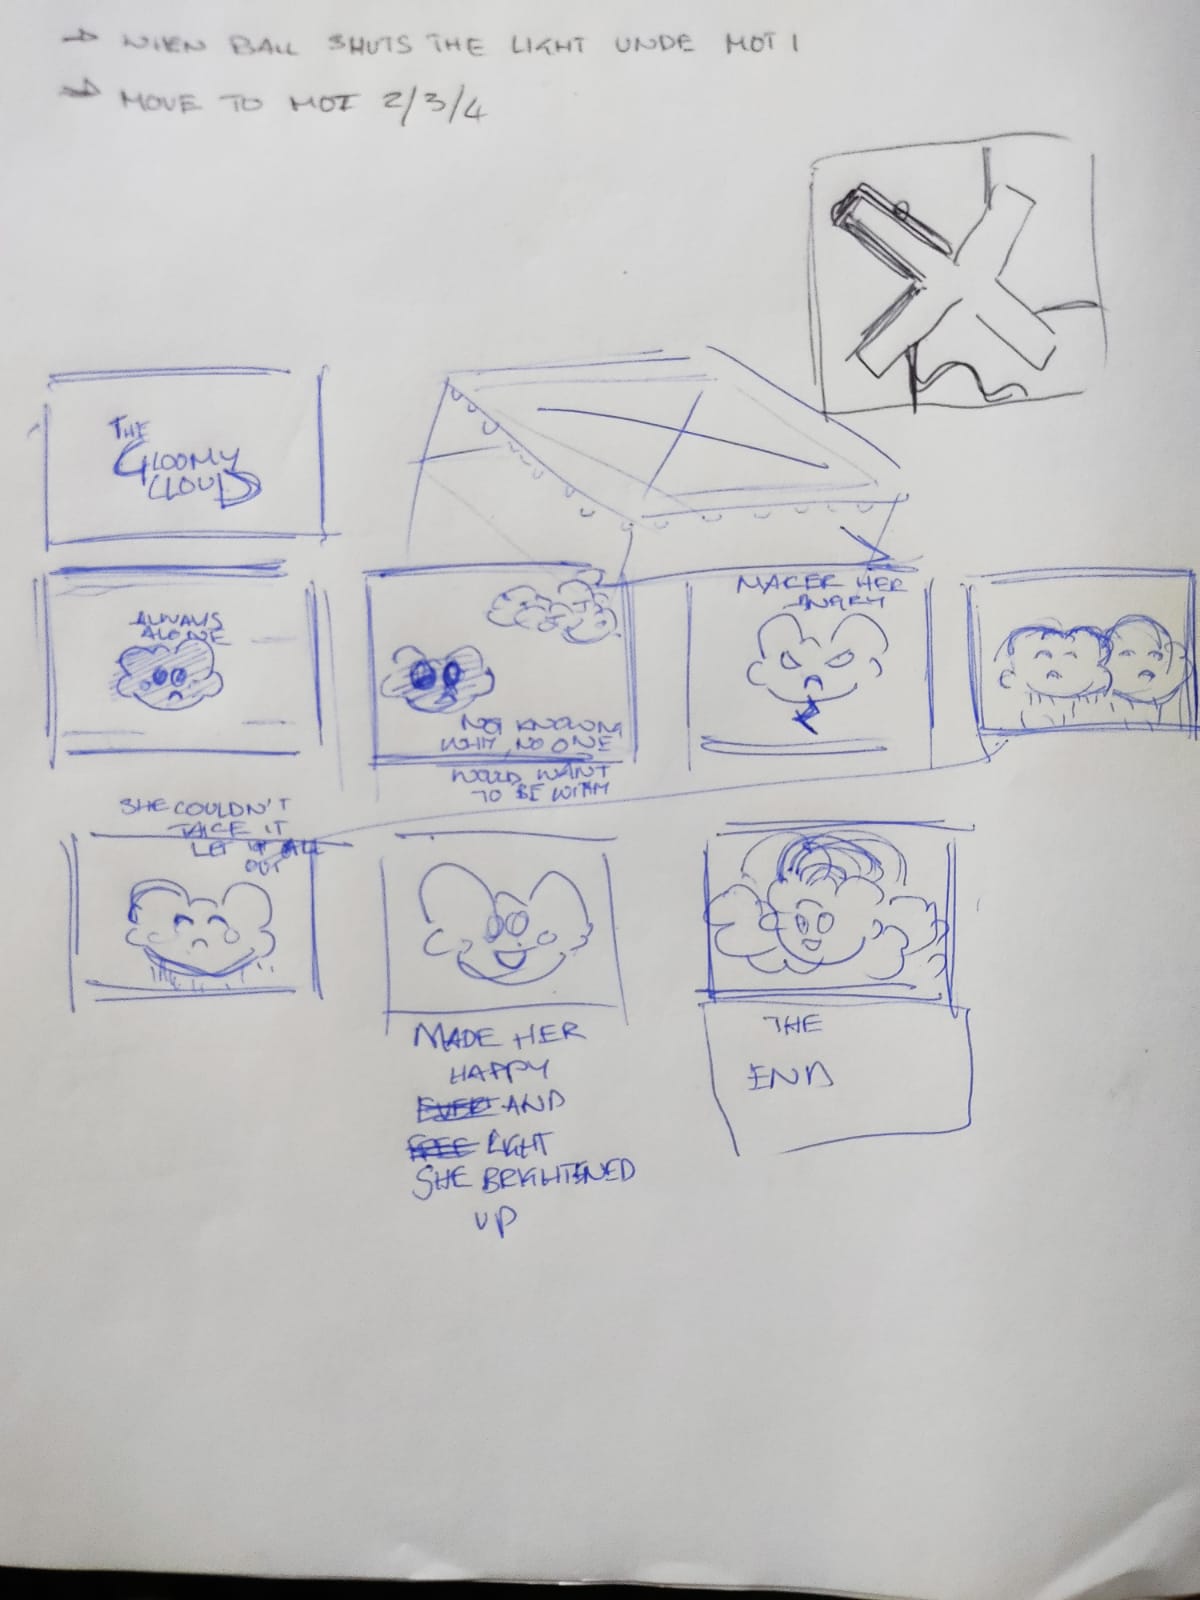 → WHEN BALL SHUTS THE LIGHT UNDE MOT 1
→ MOVE TO MOT 2/3/4
THE
GLOOMY
CLOUD
ALWAYS
ALONE
NOT KNOWING
WHY, NO ONE
WOULD WANT
TO BE WITH
MAKER HER
ANGRY
SHE COULDN'T
TAKE IT
LET IT ALL
OUT
MADE HER
HAPPY
EVER AND
FREE LIGHT
SHE BRIGHTENED
UP
THE
END